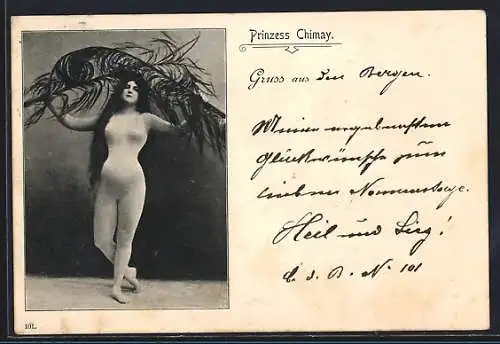 Prinzess Chimay.
Gruss aus den Bergen.
Meinen ergebensten
Glückwünsche zum
lieben Namenstage.
Heil und Sieg!
C. d. B. No 101
101.